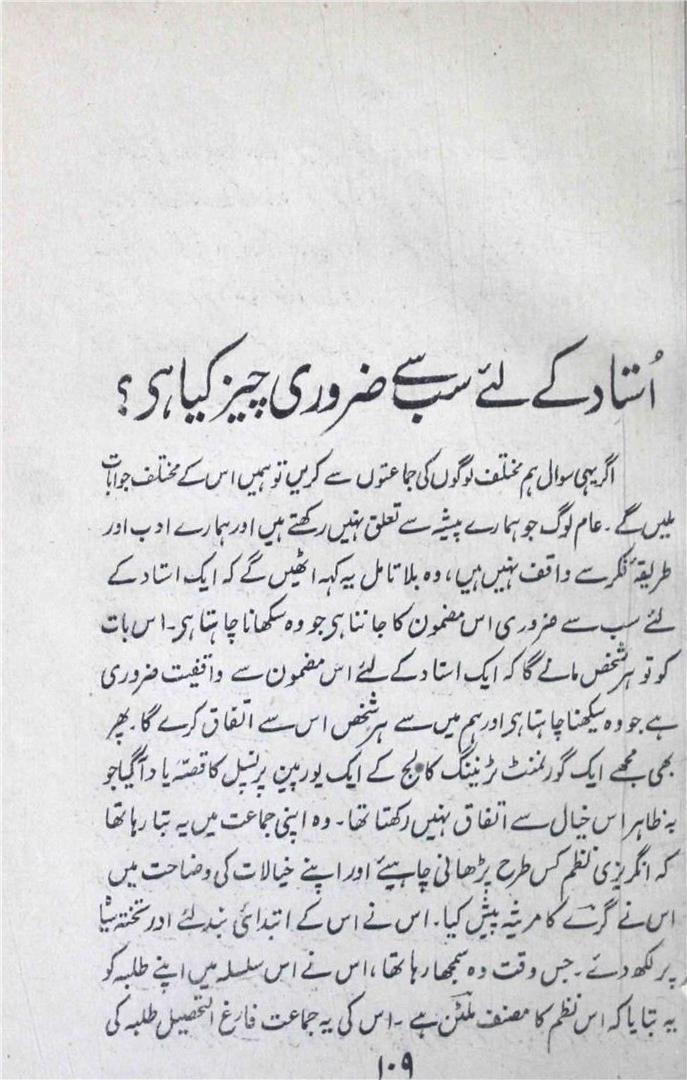 اُستاد کے لئے سب سے ضروری چیز کیا ہی؟
اگر یہی سوال ہم مختلف لوگوں کی جماعتوں سے کریں تو ہمیں اس کے مختلف جوابات
ملیں گے۔ عام لوگ جو ہمارے پیشہ سے تعلق نہیں رکھتے ہیں اور ہمارے ادب اور
طریقۂ فکر سے واقف نہیں ہیں، وہ بلا تامل یہ کہہ اٹھیں گے کہ ایک استاد کے
لئے سب سے ضروری اس مضمون کا جاننا ہی جو وہ سکھانا چاہتا ہی۔ اس بات
کو تو ہر شخص مانے گا کہ ایک استاد کے لئے اس مضمون سے واقفیت ضروری
ہے جو وہ سیکھنا چاہتا ہی اور ہم میں سے ہر شخص اس سے اتفاق کرے گا۔ پھر
بھی مجھے ایک گورنمنٹ ٹریننگ کالج کے ایک یورپین پرنسپل کا قصّہ یاد آگیا جو
بہ ظاہر اس خیال سے اتفاق نہیں رکھتا تھا۔ وہ اپنی جماعت میں یہ بتا رہا تھا
کہ انگریزی نظم کس طرح پڑھانی چاہیئے اور اپنے خیالات کی وضاحت میں
اس نے گرے کا مرثیہ پیش کیا۔ اس نے اس کے ابتدائی بند لئے اور تختہ سیاہ
پر لکھ دئے۔ جس وقت وہ سمجھا رہا تھا، اس نے اس سلسلہ میں اپنے طلبہ کو
یہ بتایا کہ اس نظم کا مصنف ملٹن ہے۔ اس کی یہ جماعت فارغ التحصیل طلبہ کی
۱۰۹